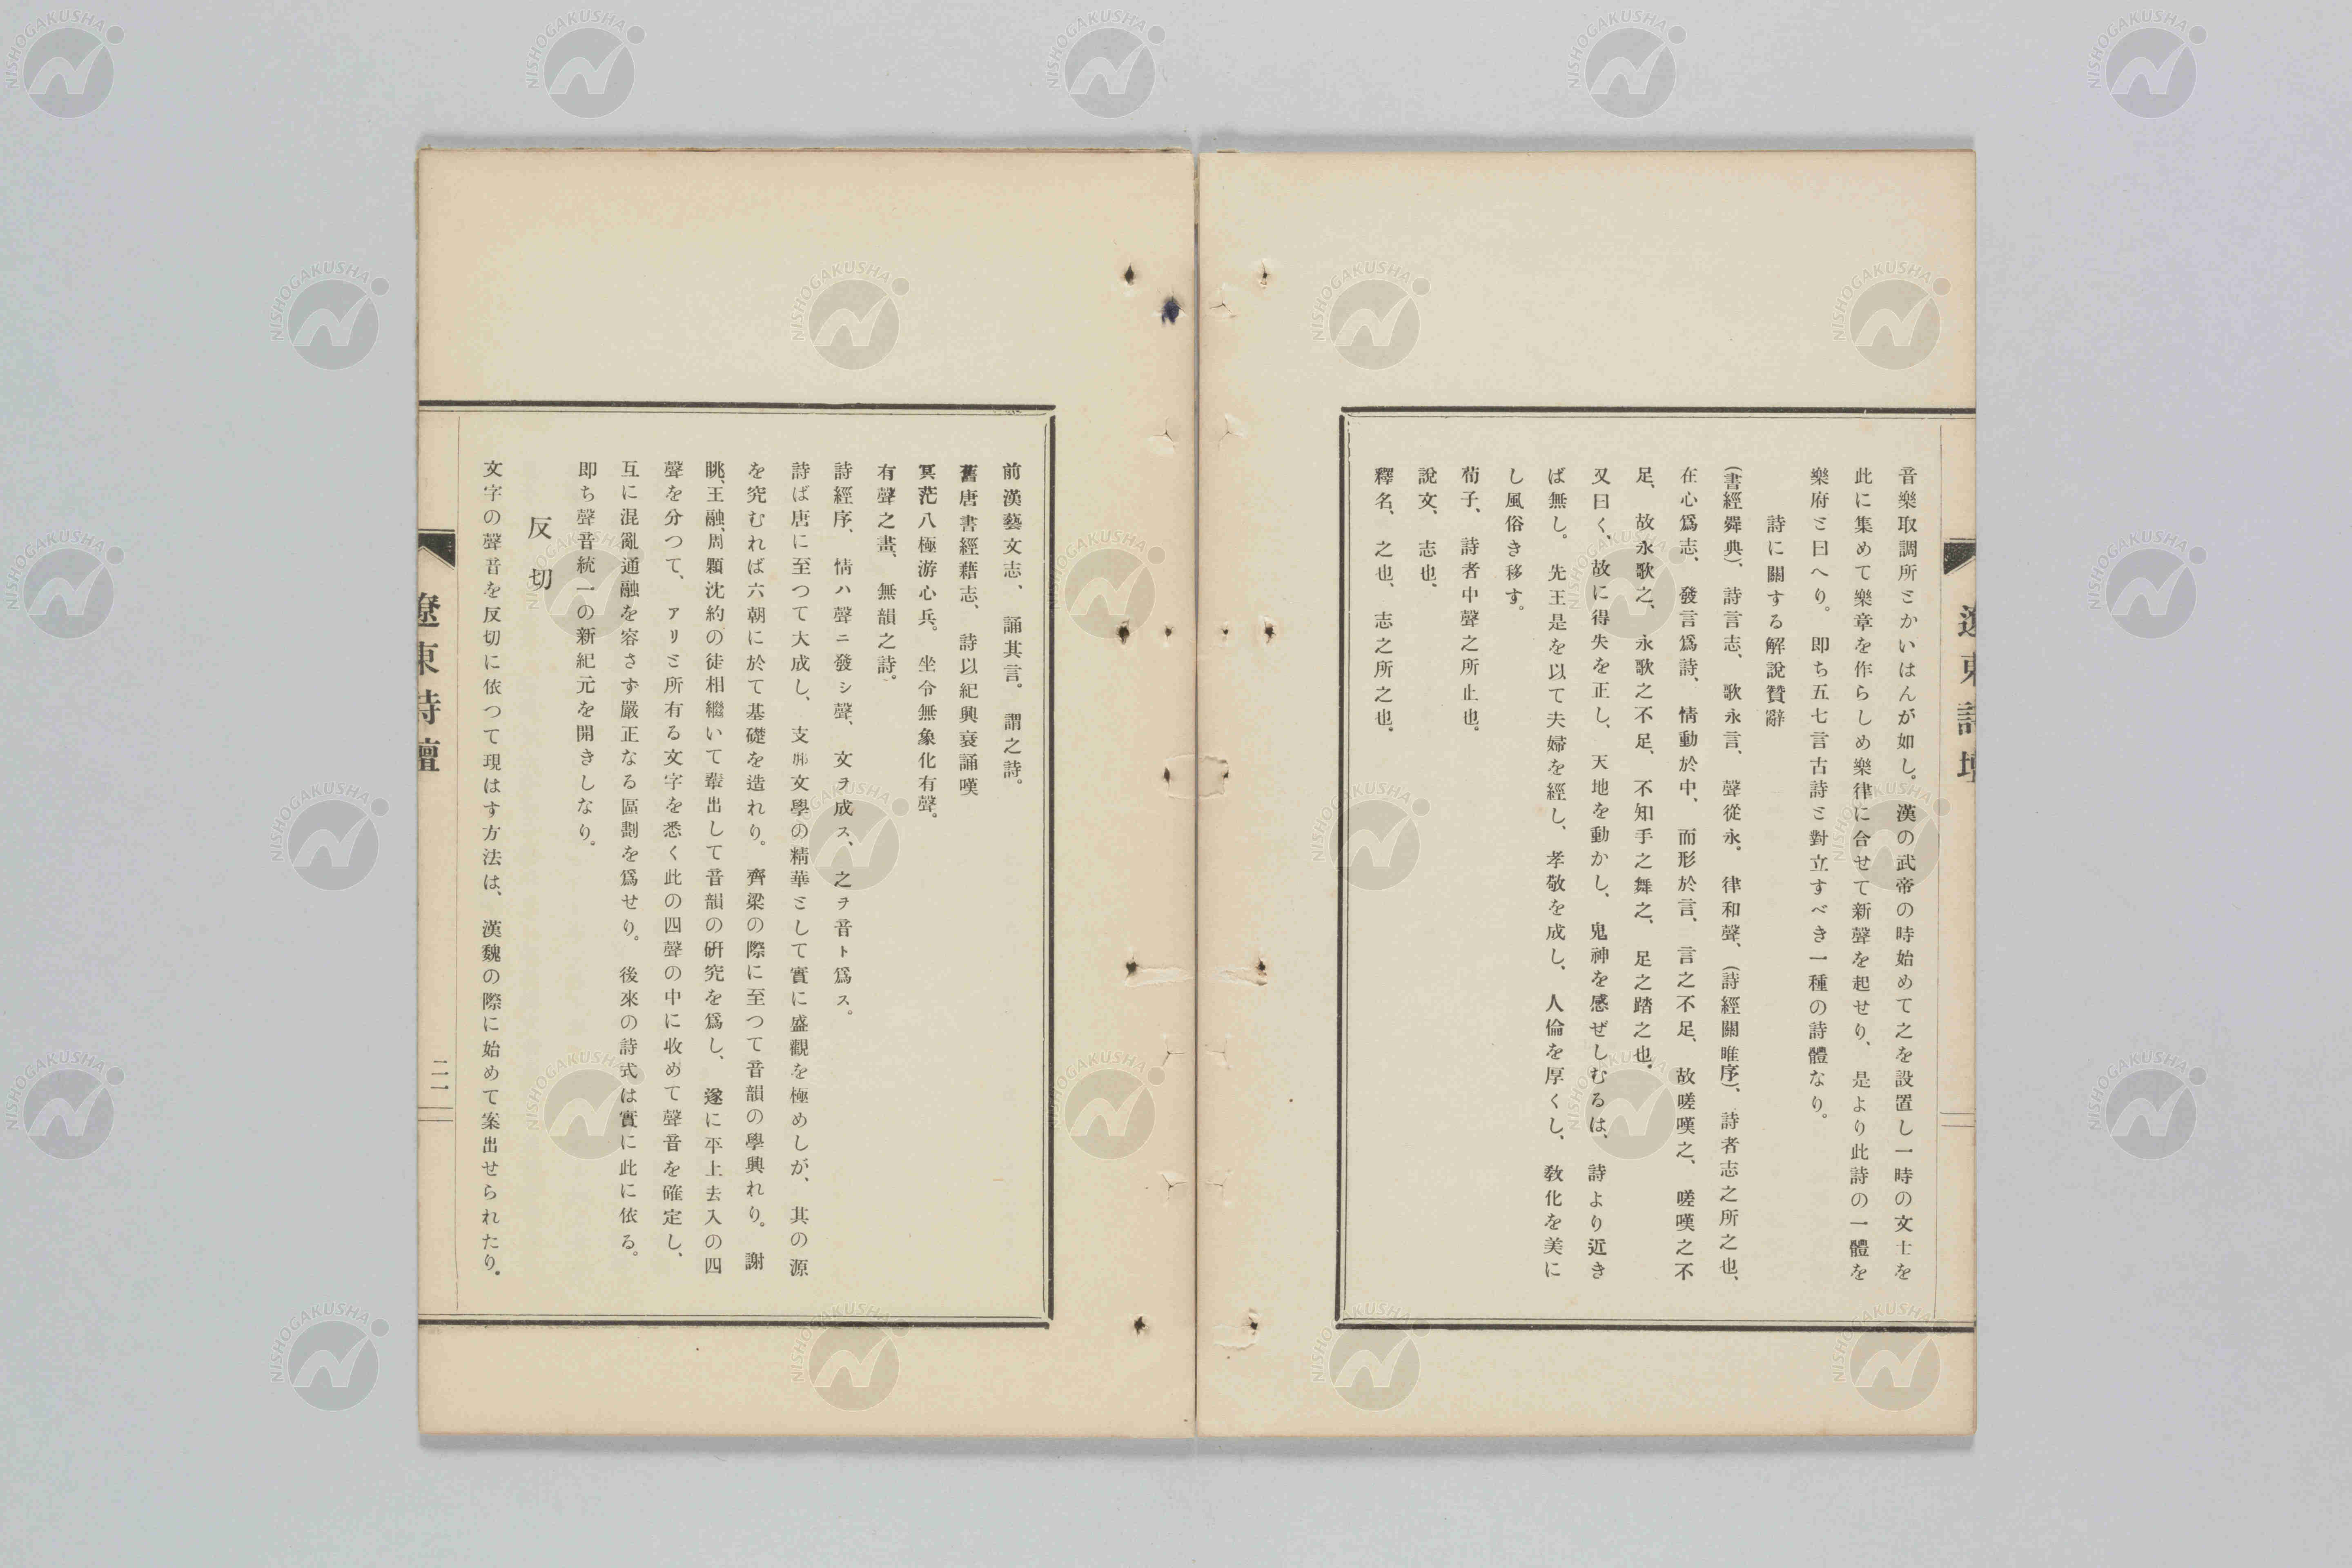 音樂取調所ミかいはんが如し。漢の武帝の時始めて之を設置し一時の文士を
此に集めて樂章を作らしめ樂律に合せて新聲を起せり、是より此詩の一體を
樂府ミ曰へり。即ち五七言古詩ミ對立すべき一種の詩體なり。
詩に關する解說贊辭
(書經舜典)、詩言志、歌永言、聲從永。律和聲、(詩經關雎序)、詩者志之所之也、
在心爲志、發言爲詩、情動於中、而形於言、言之不足、故嗟嘆之、嗟嘆之不
足、故永歌之、永歌之不足、不知手之舞之、足之踏之也。
又曰く、故に得失を正し、天地を動かし、鬼神を感ぜしむるは、詩より近き
ば無し。先王是を以て夫婦を經し、孝敬を成し、人倫を厚くし、敎化を美に
し風俗き移す。
荀子、詩者中聲之所止也。
說文、志也、
釋名、之也、志之所之也。
遼東詩壇
前漢藝文志、誦其言。謂之詩。
舊唐書經藉志、詩以紀興衰誦嘆
冥茫八極游心兵。坐令無象化有聲。
有聲之畫、無韻之詩。
詩經序、情ハ聲ニ發シ聲、文ヲ成ス、之ヲ音ト爲ス。
詩ば唐に至つて大成し、支那文學の精華ミして實に盛觀を極めしが、其の源
を究むれば六朝に於て基礎を造れり。齊梁の際に至つて音韻の學興れり。謝
眺、王融、周顒沈約の徒相繼いて輩出して音韻の硏究を爲し、遂に平上去入の四
聲を分つて、アリミ所有る文字を悉く此の四聲の中に收めて聲音を確定し、
互に混亂通融を容さず嚴正なる區劃を爲せり。後來の詩式は實に此に依る。
即ち聲音統一の新紀元を開きしなり。
反切
文字の聲音を反切に依つて現はす方法は、漢魏の際に始めて案出せられたり。
遼東詩壇
二一
NISHOGAKUSHA